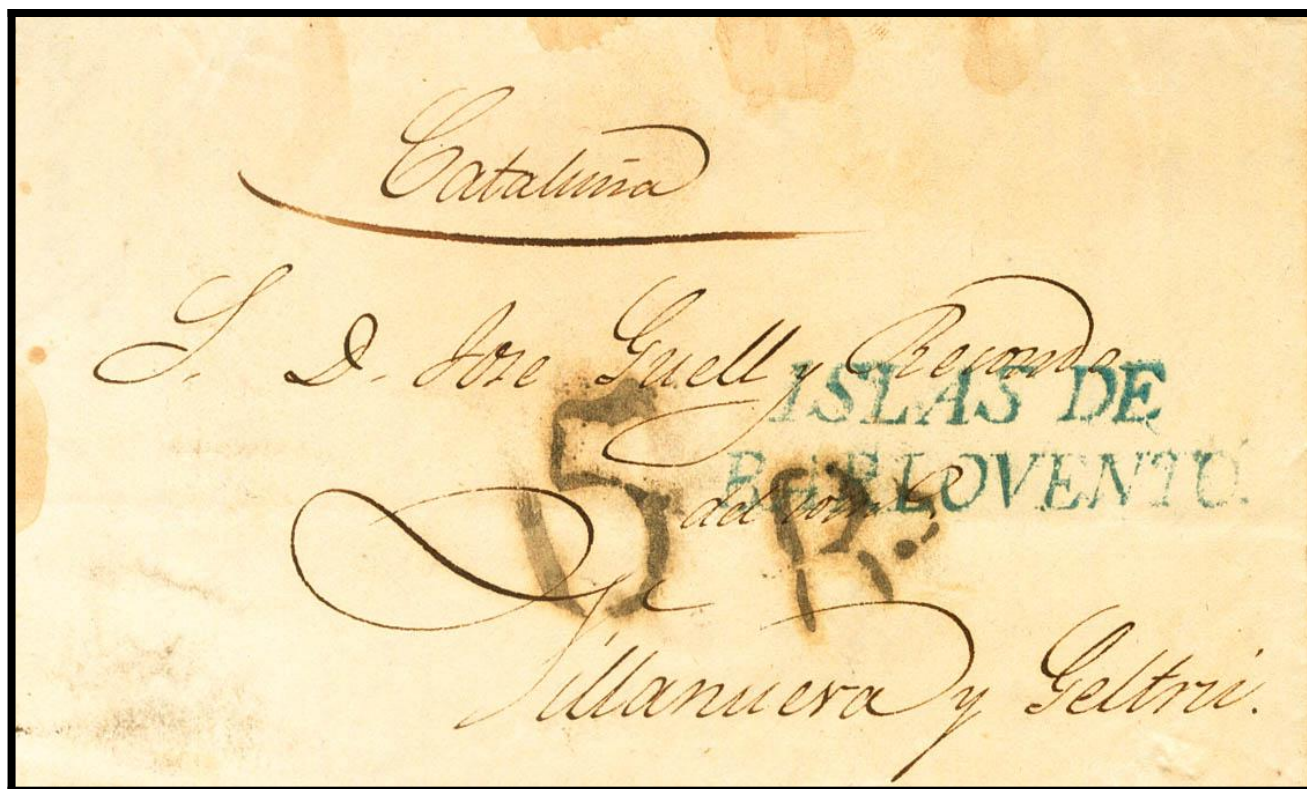 Cataluña
S. D. Jose Guell y
ISLAS DE
BARLOVENTO.
5 Rs.
del com.º
Villanueva y Geltrú.